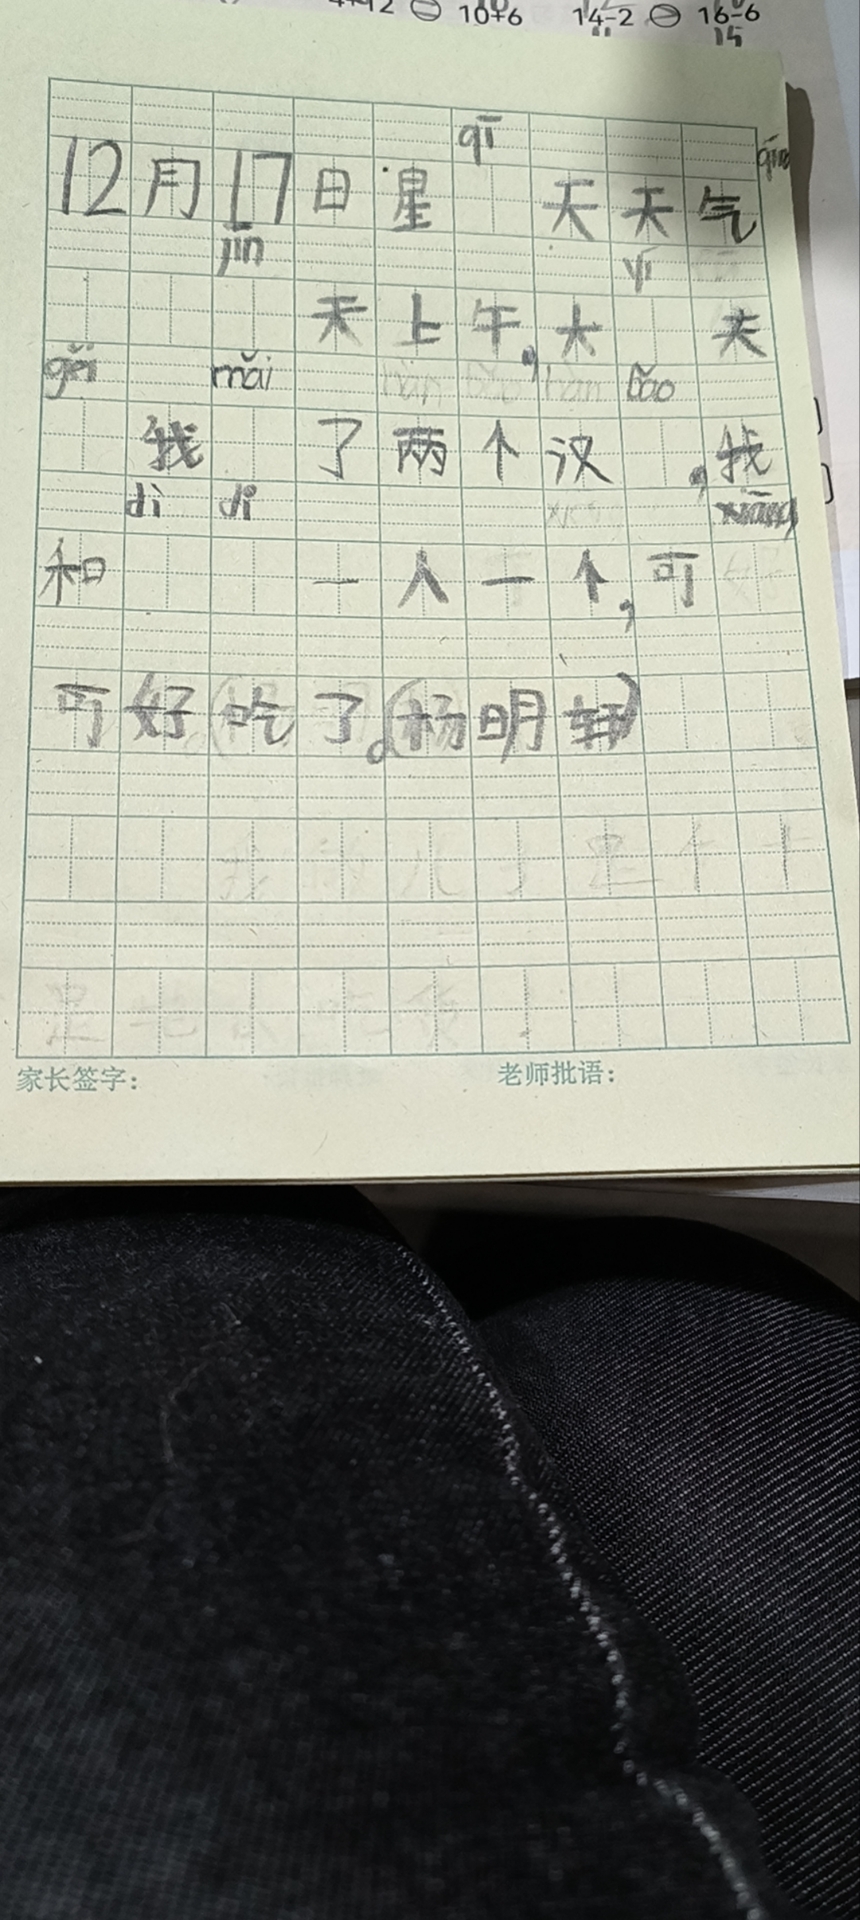 4+12 ㊀ 10+6 14-2 ㊀ 16-6
15
qī
12月17日星 天天气
jīn yī
天上午,大 夫
gěi mǎi bāo
我 了两个汉 ,我
dì di xiāng
和 一人一个,可
可好吃了。(杨明轩)
家长签字: 老师批语: